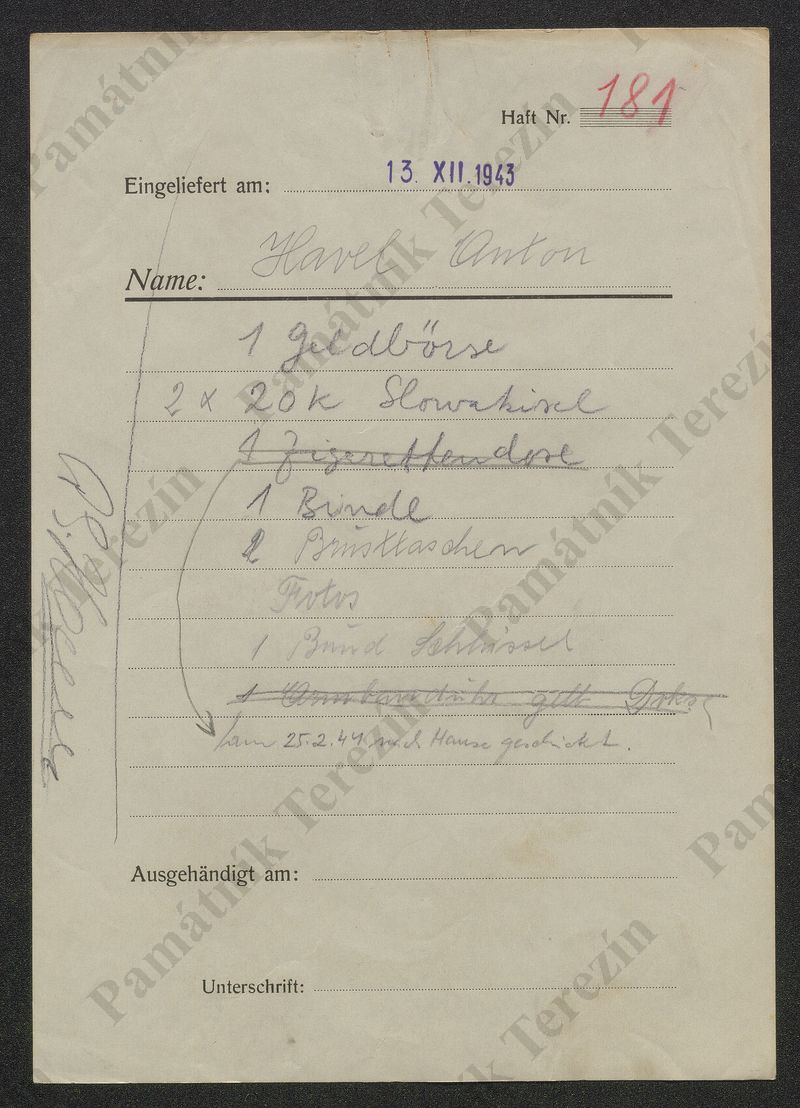 Haft Nr. 181
Eingeliefert am: 13. XII. 1943
Name: Havel Anton
1 Geldbörse
2 x 20 K Slowakisel
1 Zigerettendose
1 Binde
2 Brusttaschen
Fotos
1 Bund Schlüssel
1 Armbanduhr gelb
am 25.2.44 nach Hause geschickt.
Ausgehändigt am:
Unterschrift:
Památník Terezín